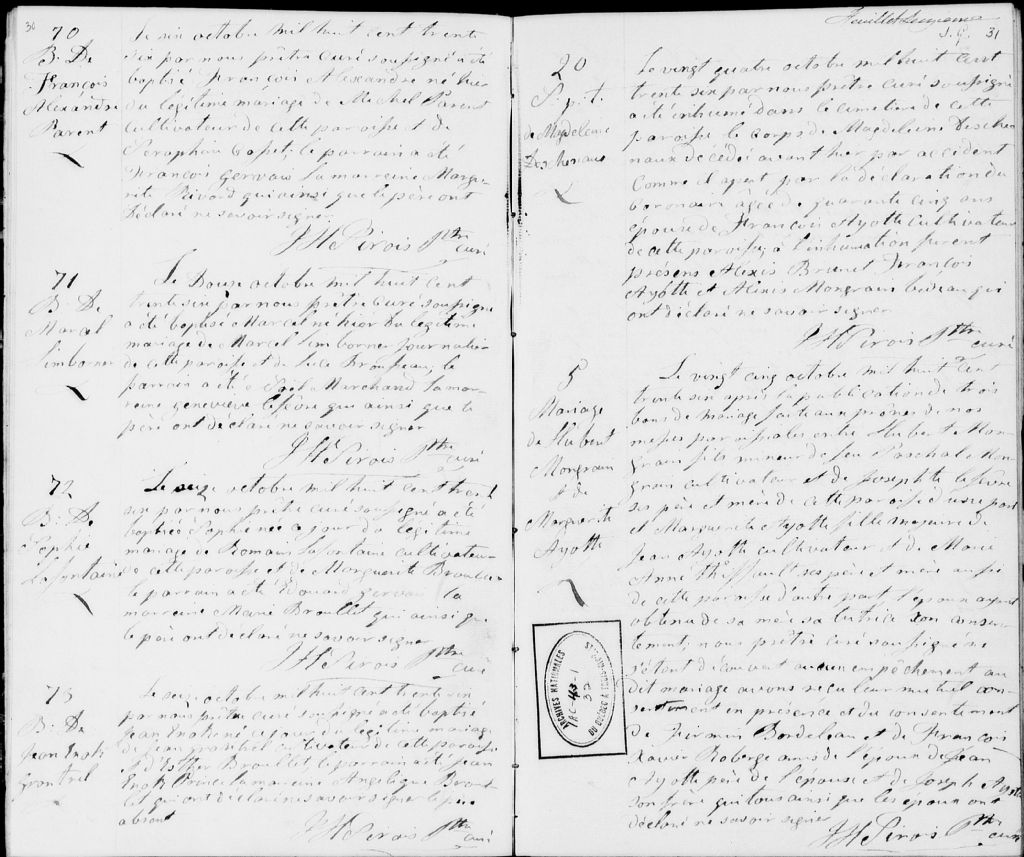 30
70
B. De
François
Alexandre
Parent
Le six octobre mil huit cent trente
six par nous prêtre curé soussigné a été
baptisé François Alexandre né hier
du légitime mariage de Michel Parent
cultivateur de cette paroisse et de
Séraphine le parrain a été
François Gervais la marraine Margue-
rite Rivard qui ainsi que le père ont
déclaré ne savoir signer
Ptre
curé
71
B. De
Marcel
Le Douze octobre mil huit cent
trente six par nous prêtre curé soussigné
a été baptisé Marcel né hier du légitime
mariage de Marcel journalier
de cette paroisse et de Luce le
parrain a été Marchand la mar-
raine geneviève Lefevre qui ainsi que le
père ont déclaré ne savoir signer
Ptre
curé
72
B. De
Sophie
Lafontaine
Le seize octobre mil huit cent trente
six par nous prêtre curé soussigné a été
baptisée Sophie née ce jour du légitime
mariage de Romain Lafontaine cultivateur
de cette paroisse et de Marguerite
le parrain a été Edouard Gervais la
marraine Marie Broullet qui ainsi que
le père ont déclaré ne savoir signer
Ptre
curé
73
B. De
Jean
Le seize octobre mil huit cent trente six
par nous prêtre curé soussigné a été baptisé
Jean né ce jour du légitime mariage
de Jean cultivateur de cette paroisse
et d'Esther Broullet, le parrain a été Jean
la marraine Angelique
et qui ont déclaré ne savoir signer le père
absent
Ptre
curé
Feuillet
31
20
S. p. t.
de Magdeleine
Deschenaux
Le vingt quatre octobre mil huit cent
trente six par nous prêtre curé soussigné
a été inhumé dans le cimetière de cette
paroisse le corps de Magdeleine Desche-
naux décédée avant hier par accident
comme il apert par la déclaration du
coronaire agée de quarante cinq ans
épouse de François Ayotte cultivateur
de cette paroisse, à l'inhumation furent
présens Alexis Brunet François
Ayotte et Alexis Mongrain bedeau qui
ont déclaré ne savoir signer
Ptre
curé
5
Mariage
de Hubert
Mongrain
& de
Marguerite
Ayotte
Le vingt cinq octobre mil huit cent
trente six après la publication de trois
bans de mariage faite aux prônes de nos
messes paroissiales entre Hubert Mon-
grain fils mineur de feu Paschal Mon-
grain cultivateur et de Josephte Lefevre
ses père et mère de cette paroisse d'une part
et Marguerite Ayotte fille majeure de
Jean Ayotte cultivateur et de Marie
Anne Thiffault ses père et mère aussi
de cette paroisse d'autre part l'époux ayant
obtenu de sa mère sa tutrice son consen-
tement, nous prêtre curé soussigné ne
s'étant découvert aucun empêchement au
dit mariage avons reçu leur mutuel con-
sentement en présence et du consentement
de Firmin Bordeleau et de François
Xavier Roberge amis de l'époux de Jean
Ayotte père de l'épouse et de Joseph Ayotte
son frère qui tous ainsi que les époux ont
déclaré ne savoir signer
Ptre
curé
ARCHIVES NATIONALES
DU QUÉBEC À